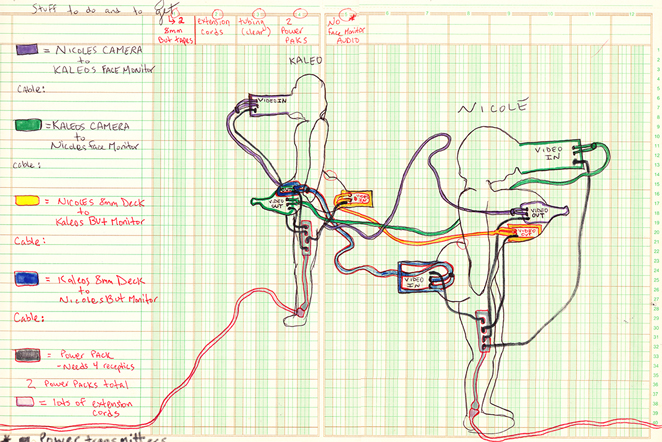 Stuff to do and to get
2
8mm
But tapes
extension
cords
tubing
(clear)
2
Power
PAKS
NO *
Face Monitor
AUDIO
KALEO
NICOLE
= NICOLES CAMERA
to
KALEOS FACE Monitor
Cable:
= KALEOS CAMERA
to
Nicoles Face Monitor
Cable:
= Nicoles 8mm Deck
to
Kaleos But Monitor
Cable:
= Kaleos 8mm Deck
to
Nicoles But Monitor
Cable:
= Power Pack
- Needs 4 receptics
2 Power Packs total
= lots of extension
cords
* = Power transmitters
VIDEO IN
VIDEO
OUT
VIDEO
IN
VIDEO
OUT
VIDEO OUT
VIDEO
IN